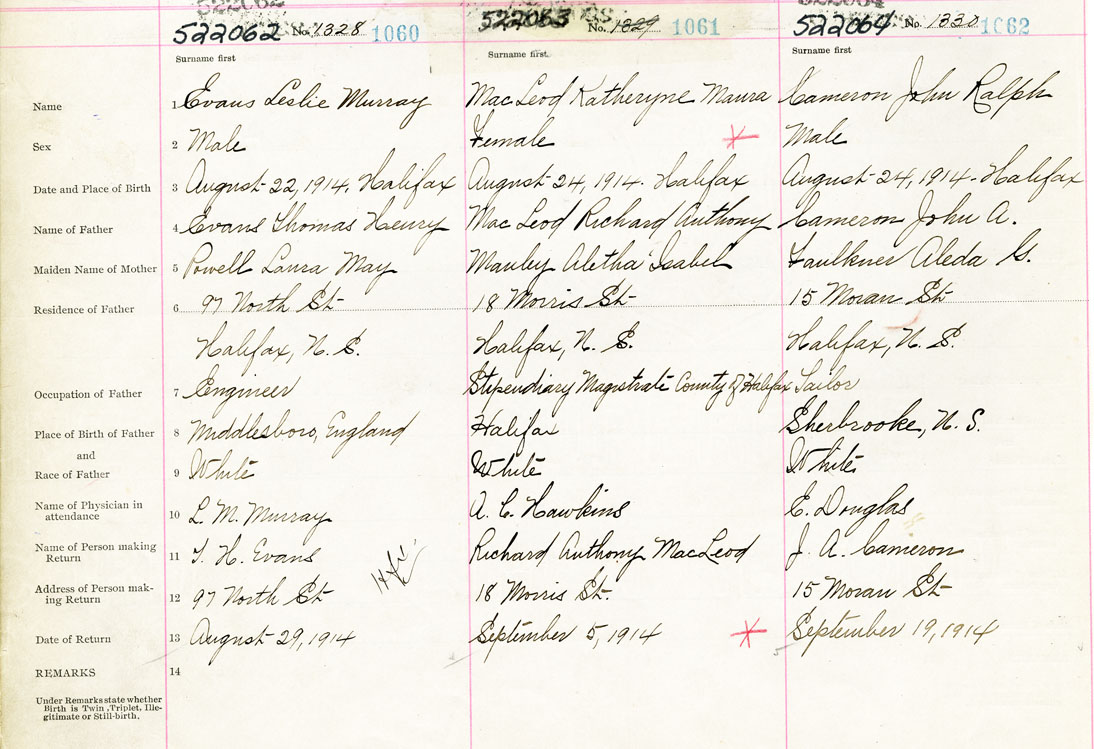 522062 No. 1328 1060
522063 No. 1329 1061
522064 No. 1330 1062
Surname first Surname first Surname first
Name 1 Evans Leslie Murray MacLeod Katheryne Maura Cameron John Ralph
Sex 2 Male Female Male
Date and Place of Birth 3 August 22, 1914. Halifax August 24, 1914. Halifax August 24, 1914. Halifax
Name of Father 4 Evans Thomas Henry MacLeod Richard Anthony Cameron John A.
Maiden Name of Mother 5 Powell Laura May Manley Aletha Isabel Faulkner Aleda G.
Residence of Father 6 97 North St 18 Morris St 15 Moran St
Halifax, N. S. Halifax, N. S. Halifax, N. S.
Occupation of Father 7 Engineer Stipendiary Magistrate County of Halifax Sailor
Place of Birth of Father 8 Middlesboro, England Halifax Sherbrooke, N. S.
and
Race of Father 9 White White White
Name of Physician in
attendance 10 L. M. Murray A. C. Hawkins E. Douglas
Name of Person making
Return 11 T. H. Evans Richard Anthony MacLeod J. A. Cameron
Address of Person mak-
ing Return 12 97 North St 18 Morris St. 15 Moran St
Date of Return 13 August 29, 1914 September 5, 1914 September 19, 1914
REMARKS 14
Under Remarks state whether
Birth is Twin, Triplet, Ille-
gitimate or Still-birth.